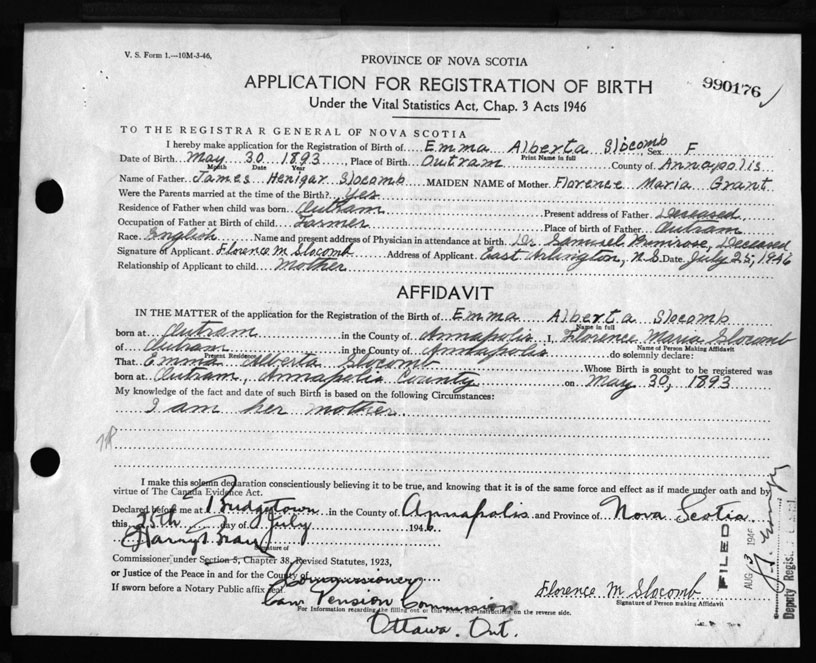 V. S. Form 1.—10M-3-46.
PROVINCE OF NOVA SCOTIA
APPLICATION FOR REGISTRATION OF BIRTH
990176
Under the Vital Statistics Act, Chap. 3 Acts 1946
TO THE REGISTRAR GENERAL OF NOVA SCOTIA
I hereby make application for the Registration of Birth of Emma Alberta Slocomb Sex F
Print Name in full
Date of Birth May 30 1893, Place of Birth Outram County of Annapolis
Month Date Year
Name of Father James Henigar Slocomb MAIDEN NAME of Mother Florence Maria Grant
Were the Parents married at the time of the Birth? Yes
Residence of Father when child was born Outram Present address of Father Deceased
Occupation of Father at Birth of child Farmer Place of birth of Father Outram
Race English Name and present address of Physician in attendance at birth Dr Samuel Primrose, Deceased
Signature of Applicant Florence M Slocomb Address of Applicant East Arlington, N.S. Date July 25, 1946
Relationship of Applicant to child Mother
AFFIDAVIT
IN THE MATTER of the application for the Registration of the Birth of Emma Alberta Slocomb
Name in full
born at Outram in the County of Annapolis I, Florence Maria Slocomb
Name of Person Making Affidavit
of Outram in the County of Annapolis do solemnly declare:
Present Residence
That Emma Alberta Slocomb Whose Birth is sought to be registered was
born at Outram, Annapolis County on May 30, 1893
My knowledge of the fact and date of such Birth is based on the following Circumstances:
I am her mother
I make this solemn declaration conscientiously believing it to be true, and knowing that it is of the same force and effect as if made under oath and by
virtue of The Canada Evidence Act.
Declared before me at Bridgetown in the County of Annapolis and Province of Nova Scotia
this 25th day of July 1946
Signature of
Commissioner under Section 5, Chapter 38, Revised Statutes, 1923,
or Justice of the Peace in and for the County of
Commissioner
If sworn before a Notary Public affix seal
Can Pension Commission
Ottawa. Ont.
Florence M Slocomb
Signature of Person making Affidavit
For Information regarding the filling out of this Form, see instructions on the reverse side.
FILED
AUG 3 1946
Deputy Regist